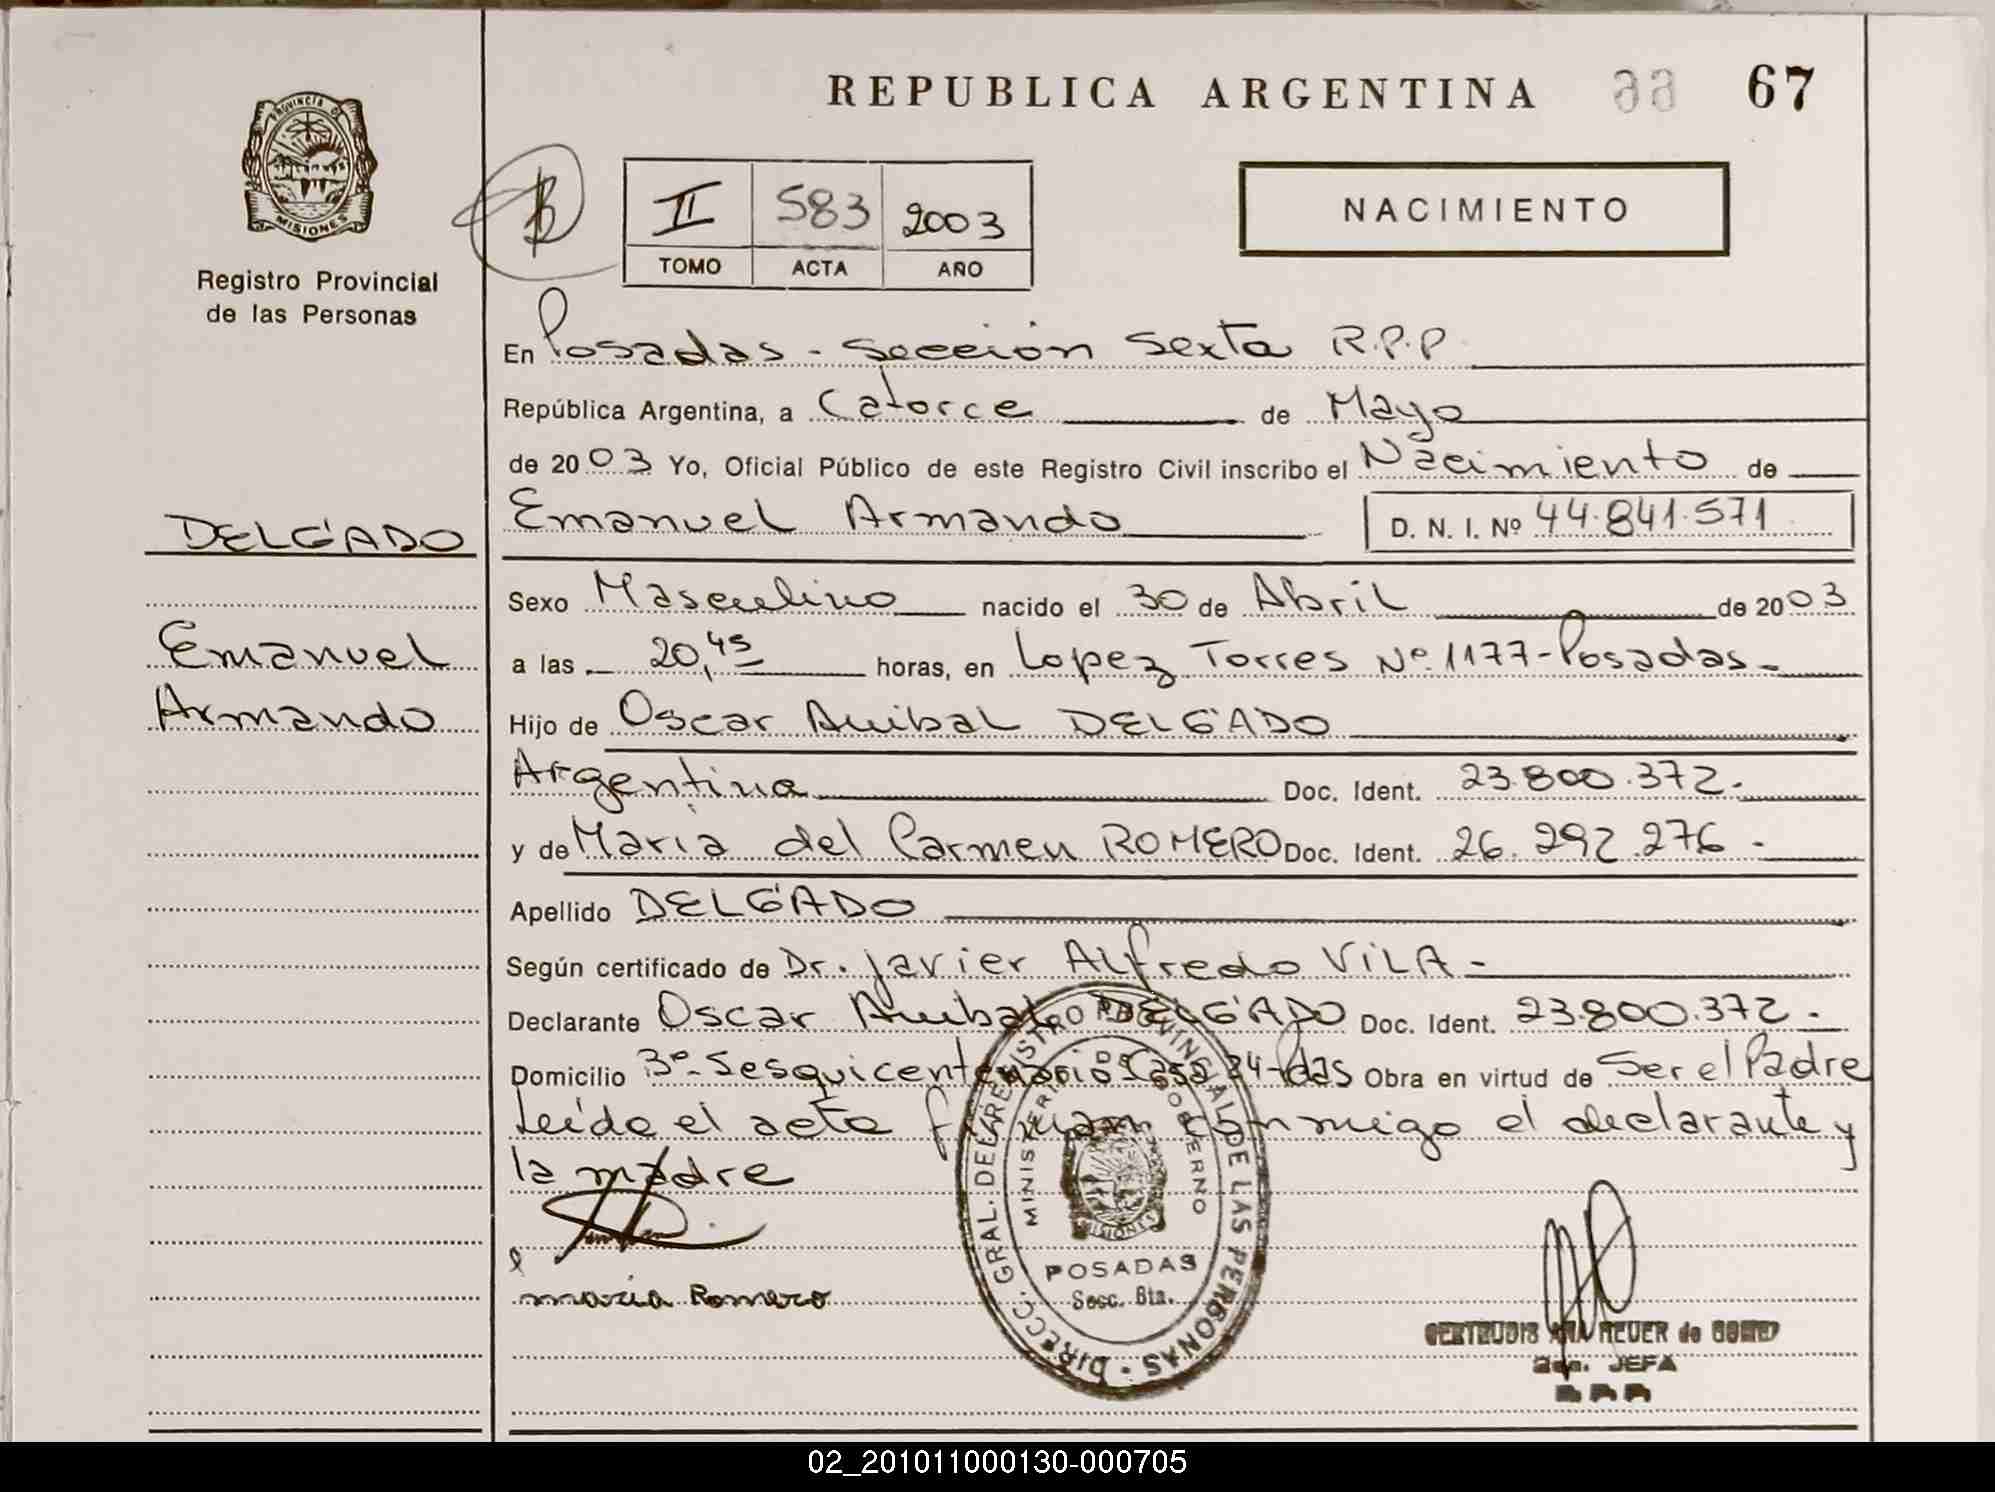 REPUBLICA ARGENTINA 67
PROVINCIA DE
MISIONES
Registro Provincial
de las Personas
II 583 2003
TOMO ACTA AÑO
NACIMIENTO
En Posadas - Sección Sexta R.P.P
República Argentina, a Catorce de Mayo
de 2003 Yo, Oficial Público de este Registro Civil inscribo el Nacimiento de
Emanuel Armando D. N. I. Nº 44.841.571
DELGADO
Emanuel
Armando
Sexo Masculino nacido el 30 de Abril de 2003
a las 20,45 horas, en Lopez Torres Nº 1177-Posadas-
Hijo de Oscar Anibal DELGADO
Argentina Doc. Ident. 23.800.372.-
y de Maria del Carmen ROMERO Doc. Ident. 26.292.276-
Apellido DELGADO
Según certificado de Dr. Javier Alfredo VILA-
Declarante Oscar Anibal DELGADO Doc. Ident. 23.800.372-
Domicilio Bº Sesquicentenario Casa 34-Pdas Obra en virtud de Ser el Padre
Leída el acta firman conmigo el declarante y
la madre
Maria Romero
DIRECC. GRAL. DEL REGISTRO PROVINCIAL DE LAS PERSONAS
MINISTERIO DE GOBIERNO
MISIONES
POSADAS
Secc. 6ta.
GERTRUDIS ANA de
JEFA
02_201011000130-000705